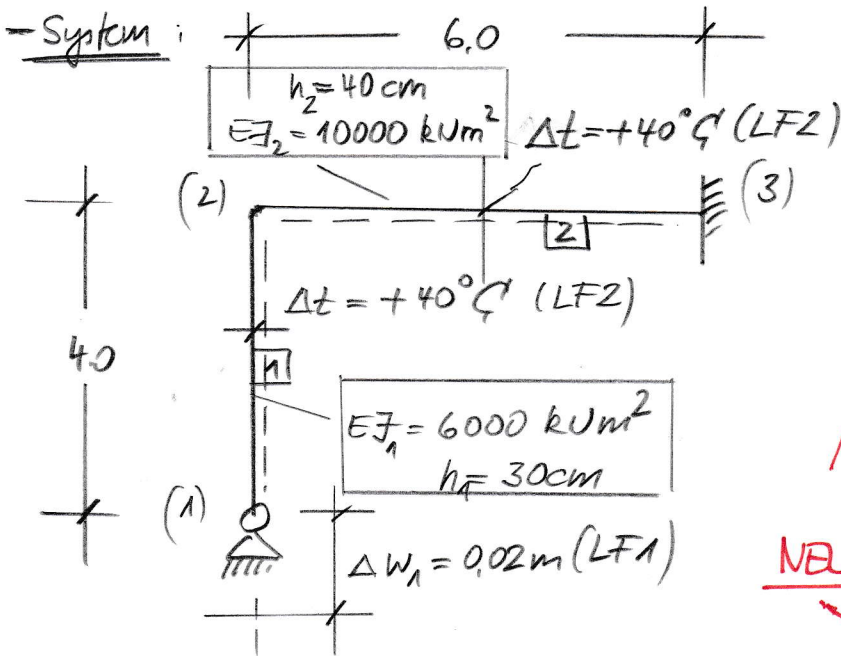 - System :
6.0
h₂ = 40 cm
EJ₂ = 10000 kNm²
Δt = +40°C (LF2)
(2)
(3)
2
Δt = +40°C (LF2)
4.0
1
EJ₁ = 6000 kNm²
h₁ = 30cm
(1)
Δw₁ = 0,02m (LF1)